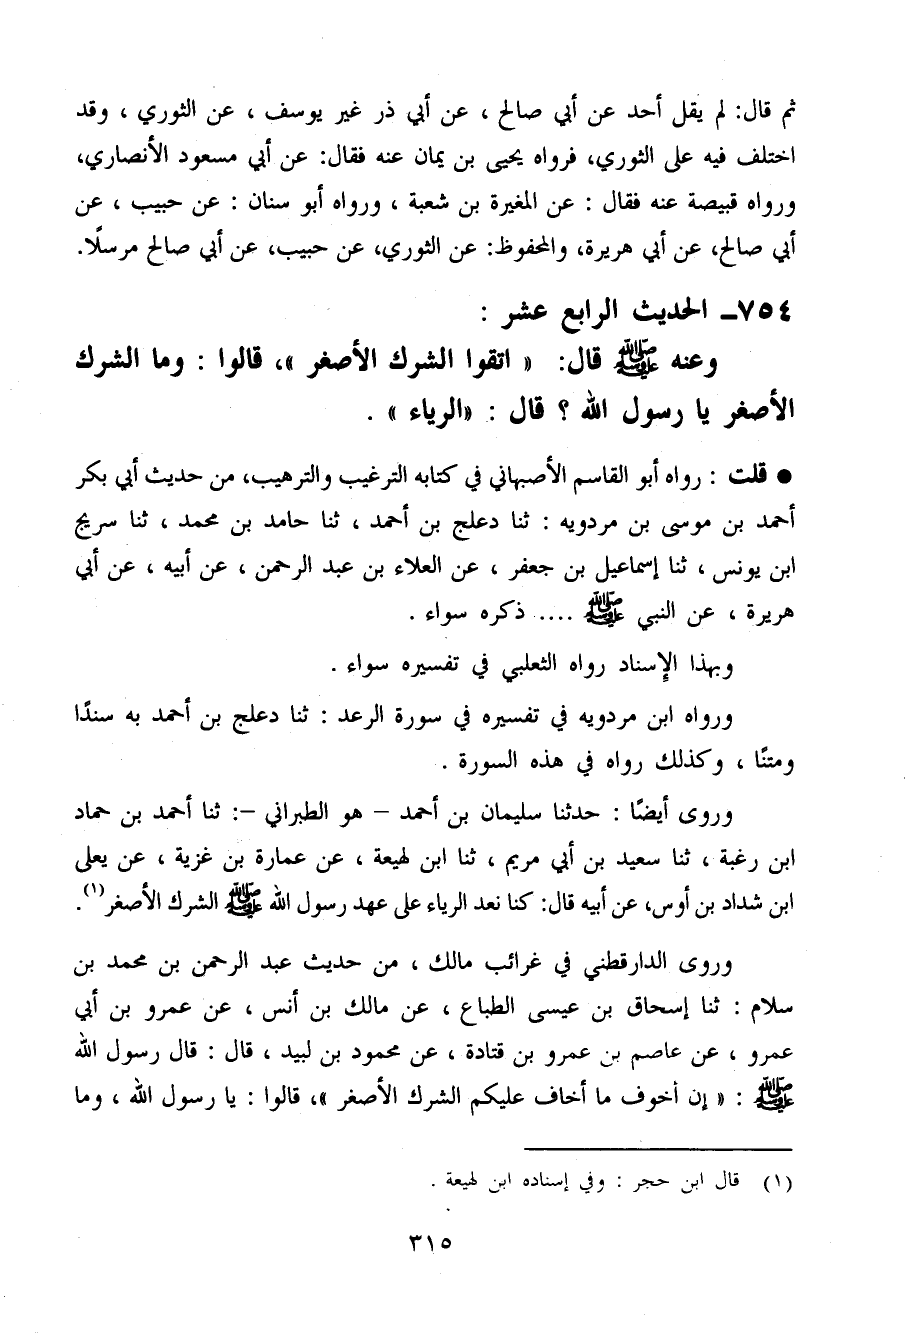 ثم قال: لم يقل أحد عن أبي صالح ، عن أبي ذر غير يوسف ، عن الثوري ، وقد
اختلف فيه على الثوري، فرواه يحيى بن يمان عنه فقال: عن أبي مسعود الأنصاري،
ورواه قبيصة عنه فقال : عن المغيرة بن شعبة ، ورواه أبو سنان : عن حبيب ، عن
أبي صالح، عن أبي هريرة، والمحفوظ: عن الثوري، عن حبيب، عن أبي صالح مرسلًا.
٧٥٤ـ الحديث الرابع عشر :
وعنه ﷺ قال: « اتقوا الشرك الأصغر »، قالوا : وما الشرك
الأصغر يا رسول الله ؟ قال : «الرياء » .
● قلت : رواه أبو القاسم الأصبهاني في كتابه الترغيب والترهيب، من حديث أبي بكر
أحمد بن موسى بن مردويه : ثنا دعلج بن أحمد ، ثنا حامد بن محمد ، ثنا سريج
ابن يونس ، ثنا إسماعيل بن جعفر ، عن العلاء بن عبد الرحمن ، عن أبيه ، عن أبي
هريرة ، عن النبي ﷺ .... ذكره سواء .
وبهذا الإسناد رواه الثعلبي في تفسيره سواء .
ورواه ابن مردويه في تفسيره في سورة الرعد : ثنا دعلج بن أحمد به سندًا
ومتنًا ، وكذلك رواه في هذه السورة .
وروى أيضًا : حدثنا سليمان بن أحمد – هو الطبراني –: ثنا أحمد بن حماد
ابن رغبة ، ثنا سعيد بن أبي مريم ، ثنا ابن لهيعة ، عن عمارة بن غزية ، عن يعلى
ابن شداد بن أوس، عن أبيه قال: كنا نعد الرياء على عهد رسول الله ﷺ الشرك الأصغر(١).
وروى الدارقطني في غرائب مالك ، من حديث عبد الرحمن بن محمد بن
سلام : ثنا إسحاق بن عيسى الطباع ، عن مالك بن أنس ، عن عمرو بن أبي
عمرو ، عن عاصم بن عمرو بن قتادة ، عن محمود بن لبيد ، قال : قال رسول الله
ﷺ : « إن أخوف ما أخاف عليكم الشرك الأصغر »، قالوا : يا رسول الله ، وما
(١) قال ابن حجر : وفي إسناده ابن لهيعة .
٣١٥